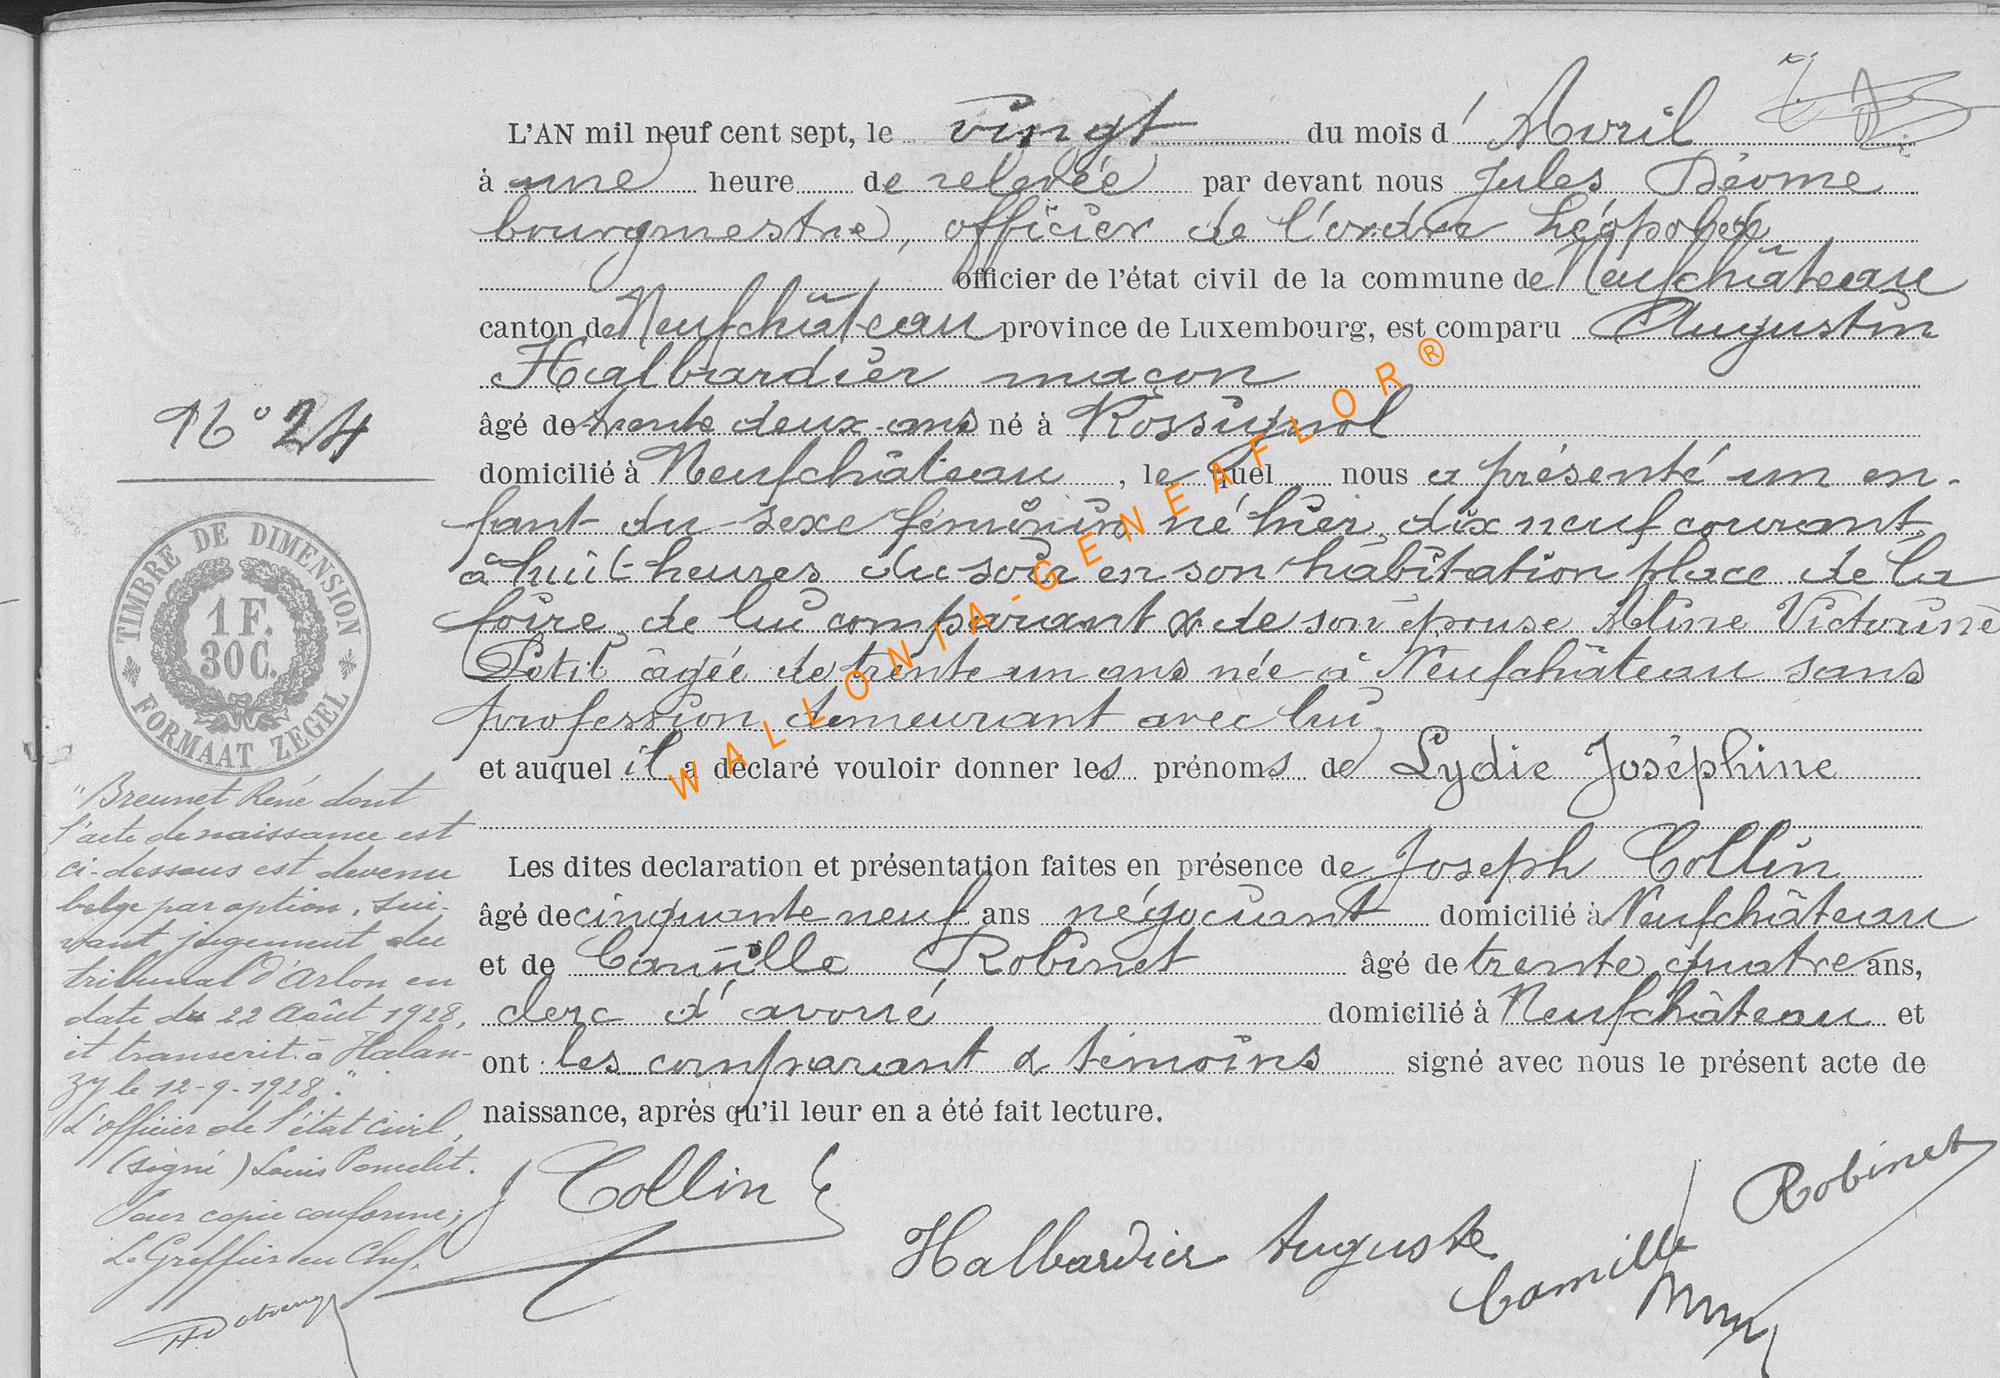 L'AN mil neuf cent sept, le vingt du mois d' Avril
à une heure de relevée par devant nous Jules
bourgmestre, officier de l'ordre Léopold
officier de l'état civil de la commune de Neufchâteau
canton de Neufchâteau province de Luxembourg, est comparu Augustin
Halbardier maçon
âgé de trente deux ans né à Rossignol
domicilié à Neufchâteau, le quel nous a présenté un en-
fant du sexe féminin né hier dix neuf courant
à huit heures du soir en son habitation place de la
foire de lui comparant & de son épouse Aline Victorine
Petit âgée de trente un ans née à Neufchâteau sans
profession demeurant avec lui
et auquel il a déclaré vouloir donner les prénoms de Lydie Joséphine
Les dites declaration et présentation faites en présence de Joseph Collin
âgé de cinquante neuf ans négociant domicilié à Neufchâteau
et de Camille Robinet âgé de trente quatre ans,
clerc d'avoué domicilié à Neufchâteau et
ont les comparant & témoins signé avec nous le présent acte de
naissance, après qu'il leur en a été fait lecture.
J Collin
Halbardier Auguste
Camille Robinet
N° 24
TIMBRE DE DIMENSION
1 F.
30 C.
FORMAAT ZEGEL
"Breunet René dont
l'acte de naissance est
ci-dessous est devenu
belge par option, sui-
vant jugement du
tribunal d'Arlon en
date du 22 Août 1928,
et transcrit à Halan-
zy le 12-9-1928."
L'officier de l'état civil,
(signé) Louis
Pour copie conforme;
Le Greffier en Chef,
WALLONIA-GENEAFLOR®